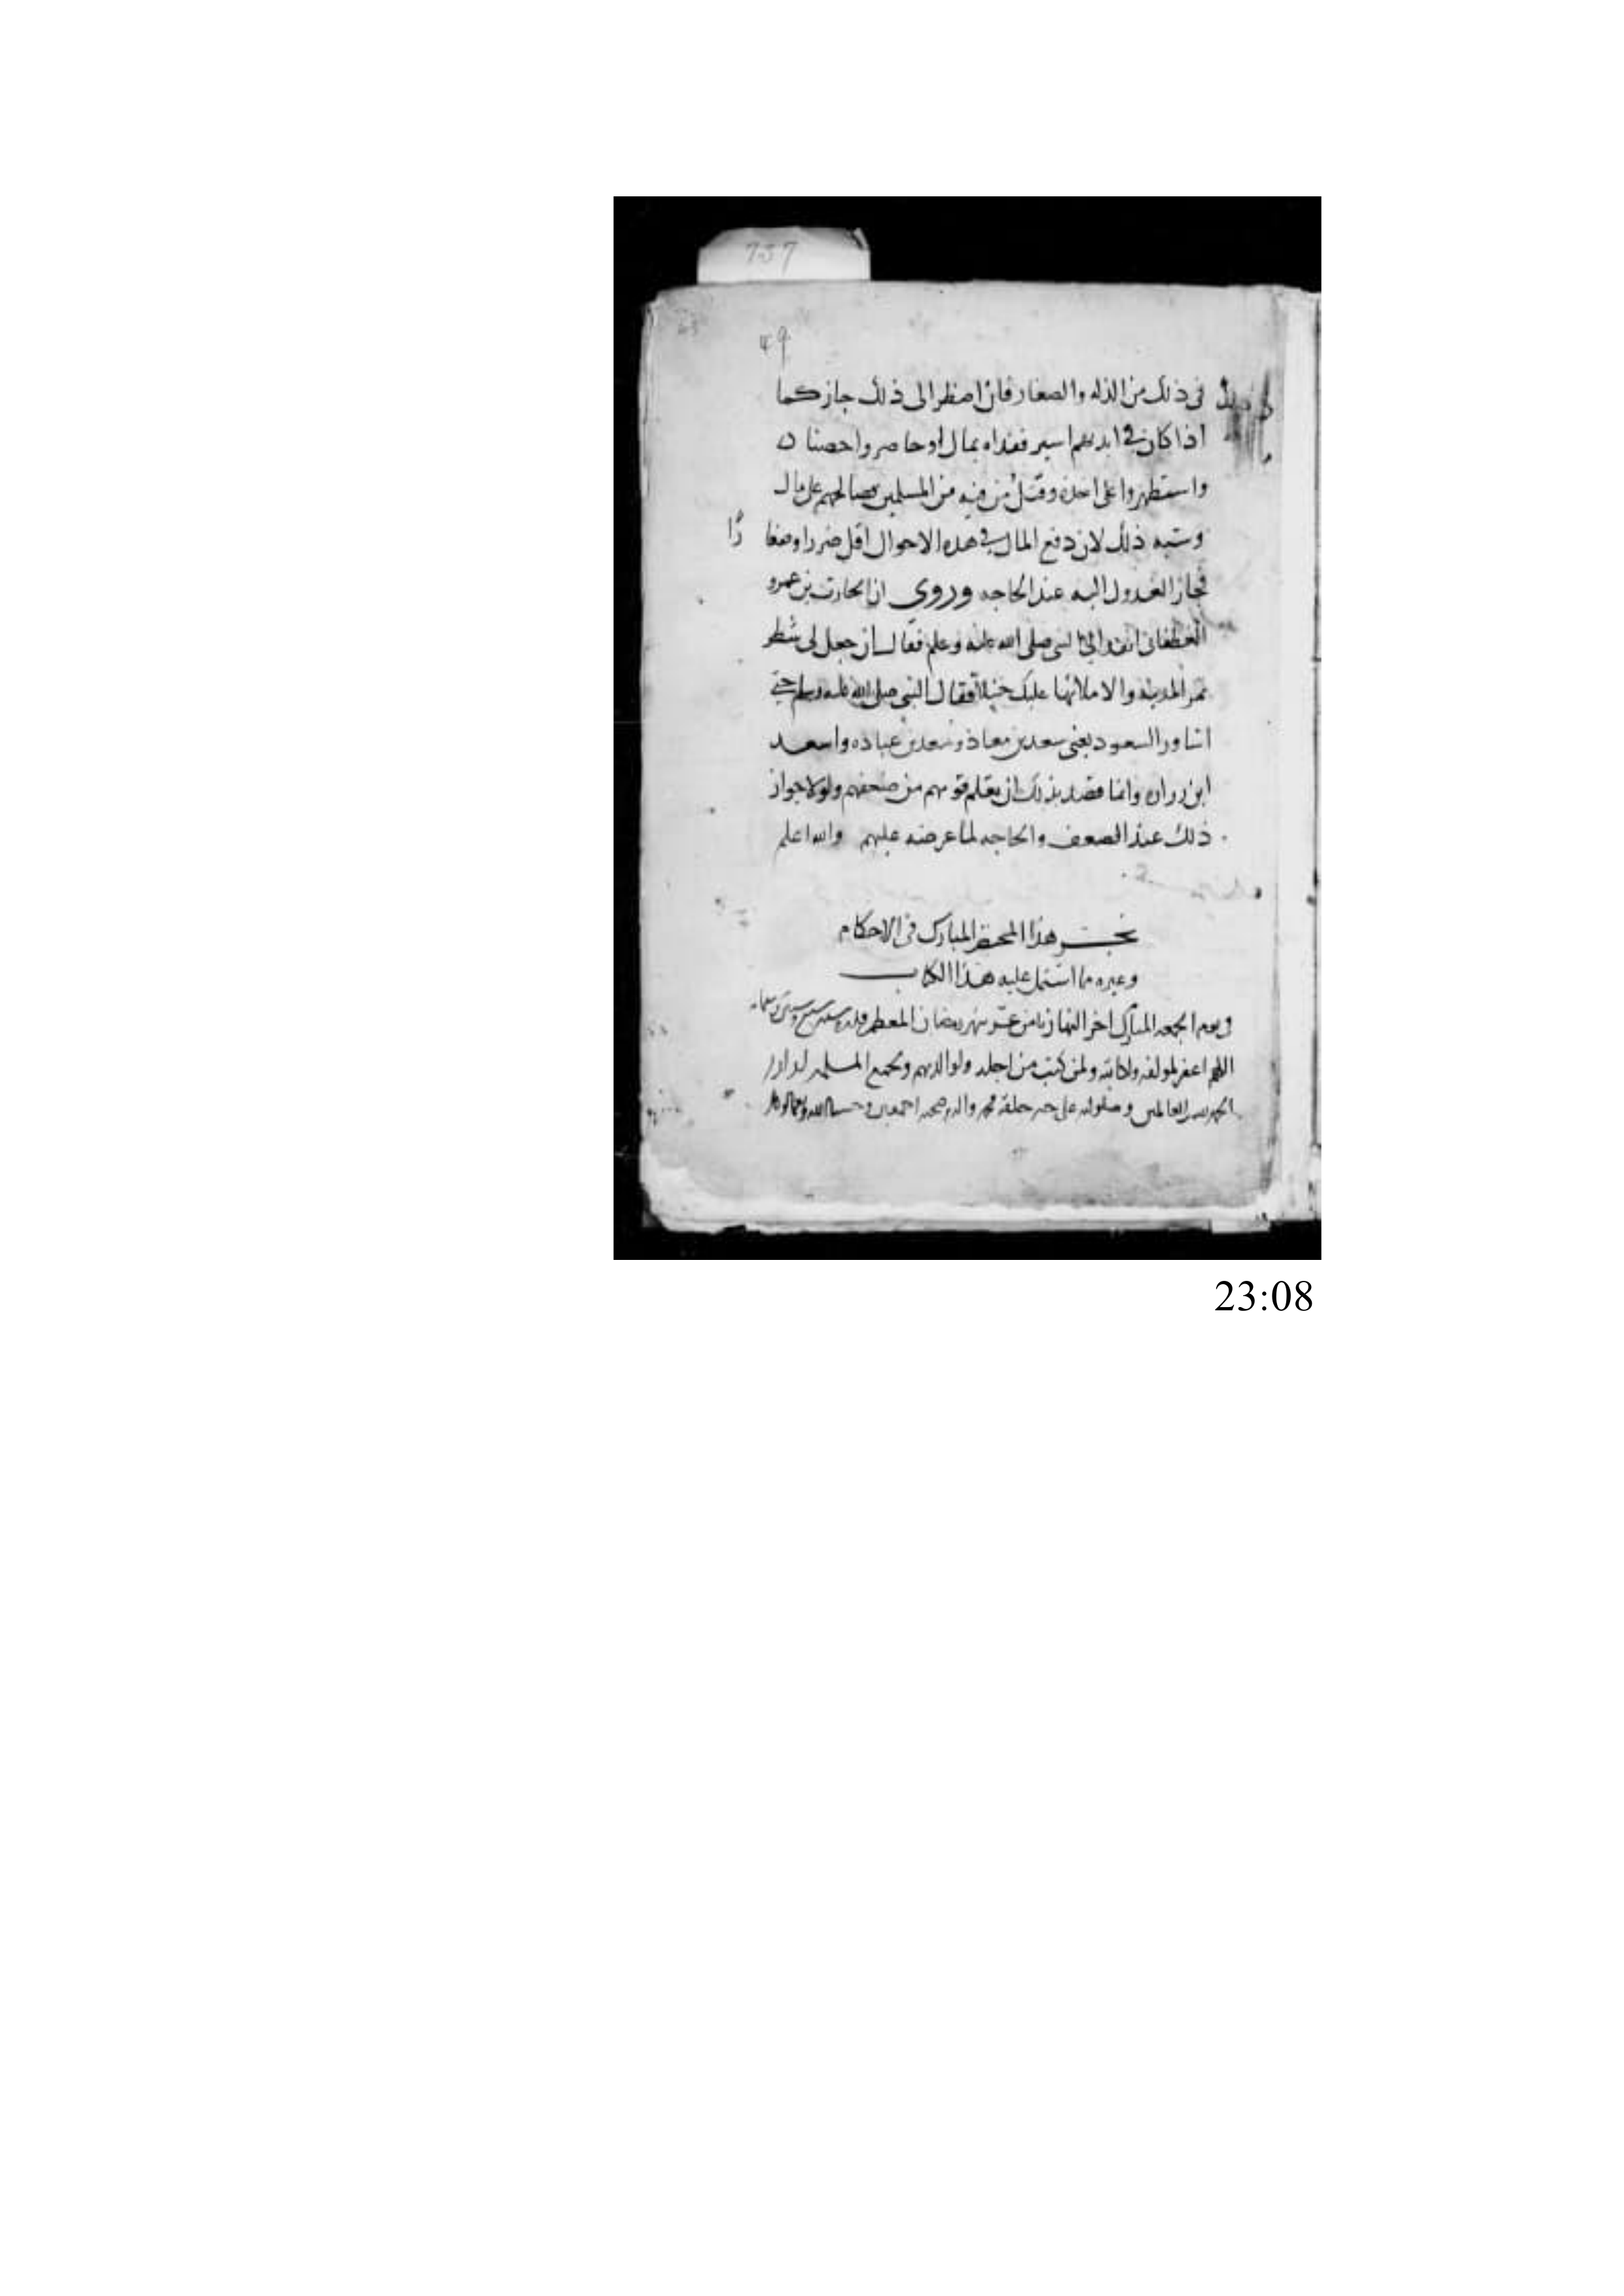 737
49
في ذلك من الذله والصغار فان اضطر الى ذلك جاز كما
اذا كان في ايديهم اسير ففداه بمال او حاصروا حصنا
واستظهروا على اخذه وقتل من فيه من المسلمين فصالحهم على مال
وشبه ذلك لان دفع المال في هذه الاحوال اقل ضررا وصغا رًا
فجاز العدول اليه عند الحاجه وروي ان الحارث بن عمرو
الغطفاني الى النبي صلى الله عليه وسلم فقال ان جعل لي شطر
ثمر المدينه والا ملاتها عليك خيلا فقال النبي صلى الله عليه وسلم حتى
اشاور السعود يعني سعد بن معاذ وسعد بن عباده واسعد
ابن زراره وانما قصد بذلك ان يعلم قوتهم من ضعفهم ولولا جواز
ذلك عند الضعف والحاجه لما عرضه عليهم والله اعلم
نجز هذا المبارك في الاحكام
وغيره مما اشتمل عليه هذا الكتاب
في يوم الجمعه المبارك اخر النهار ثامن عشر شهر رمضان المعظم
اللهم اغفر لمولفه ولكاتبه ولمن كتب من اجله ولوالديهم ولجميع المسلمين
الحمد لله رب العالمين وصلواته على خير خلقه محمد واله وصحبه اجمعين وحسبنا الله ونعم الوكيل
23:08